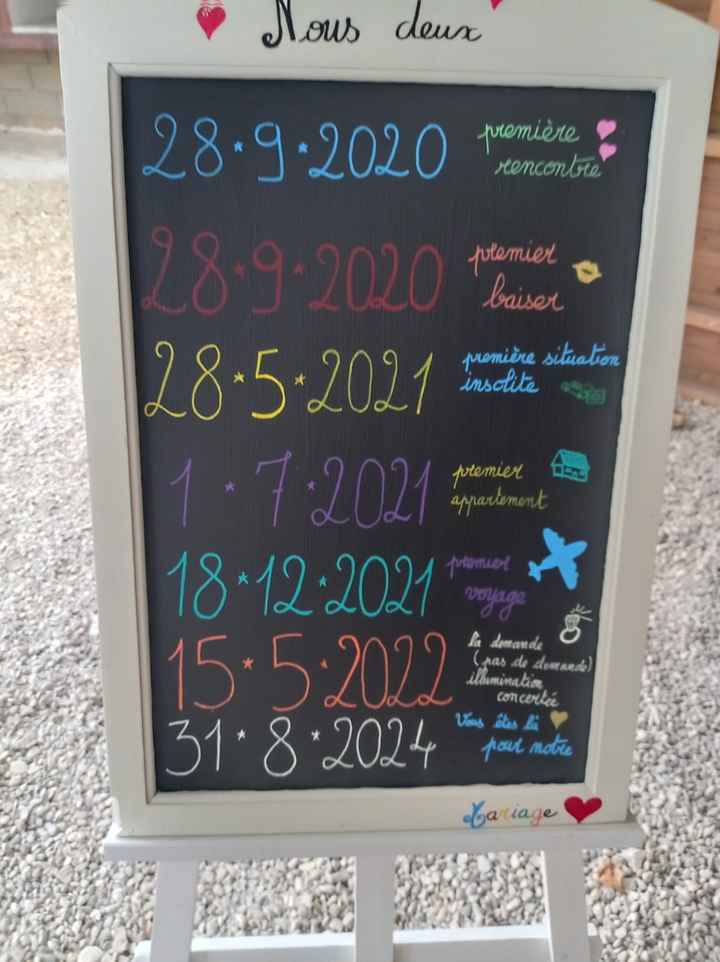 Nous deux
28*9*2020 première
rencontre
28*9*2020 premier
baiser
28*5*2021 première situation
insolite
1*7*2021 premier
appartement
18*12*2021 premier
voyage
15*5*2022 la demande
(pas de demande)
illumination
concertée
31*8*2024 Vous êtes là
pour notre
Mariage